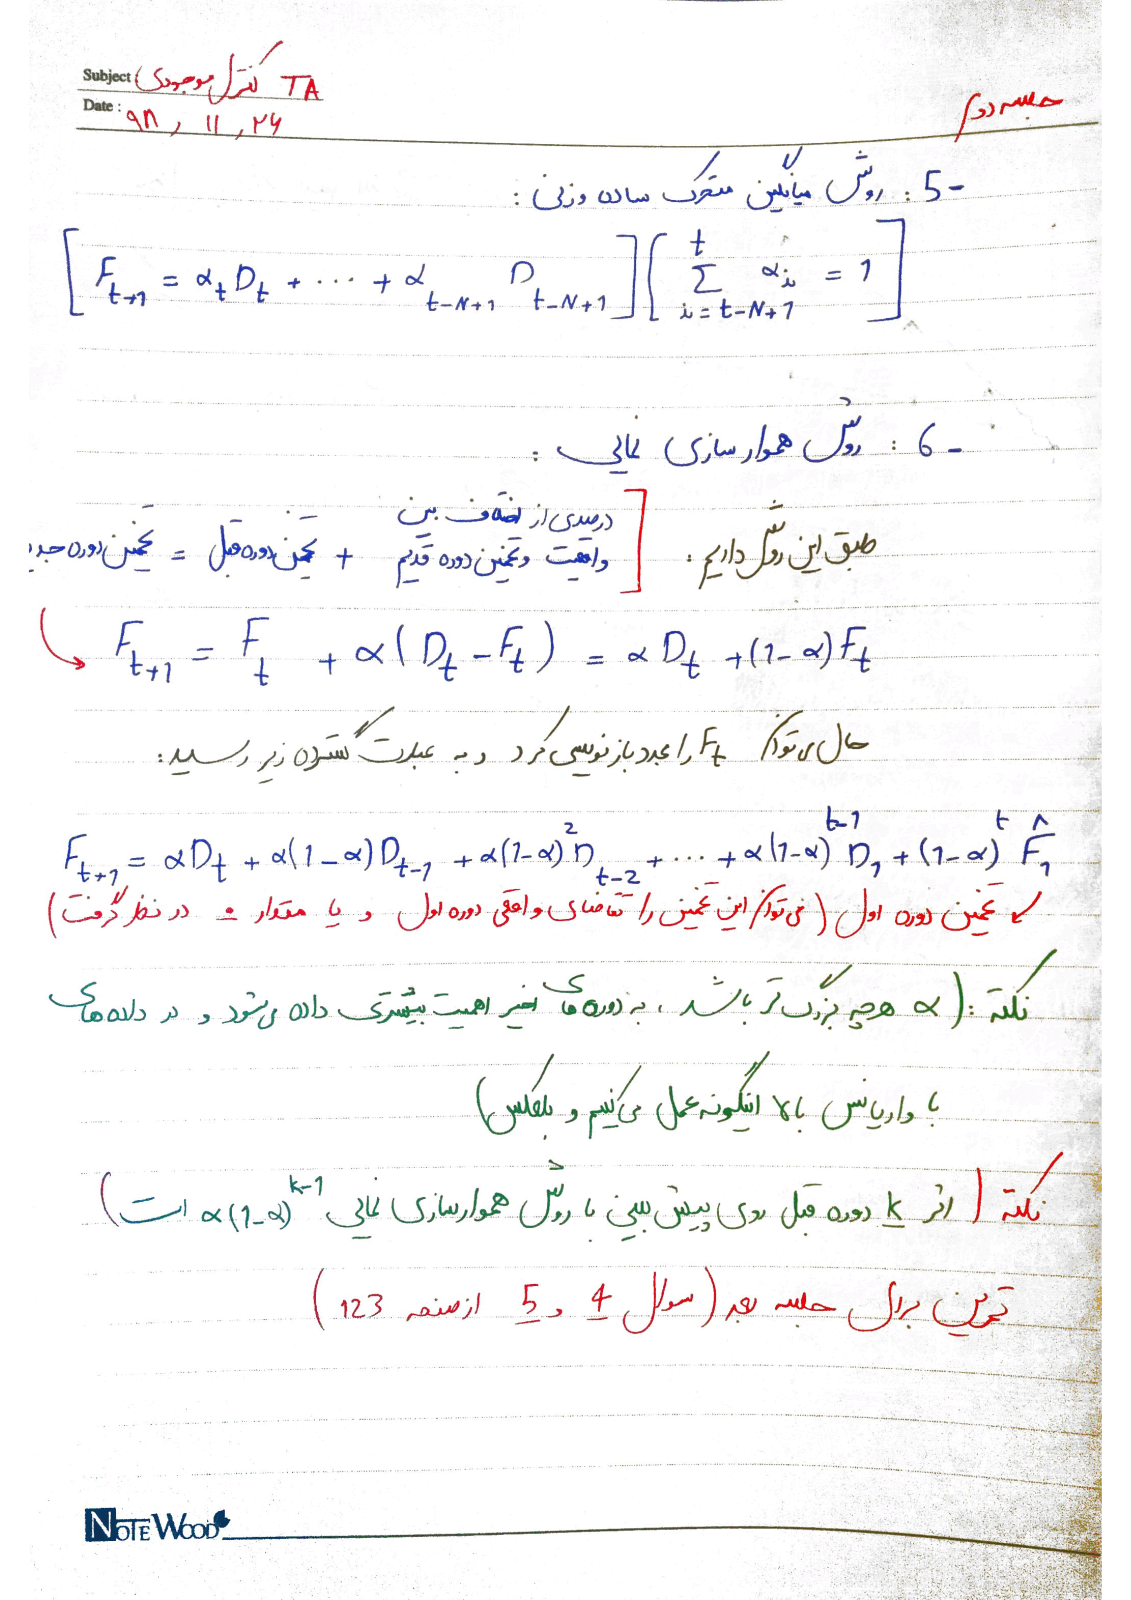 Subject (کنترل موجودی) TA
Date : ۹۸ , ۱۱ , ۲۴
جلسه دوم
5- : روش میانگین متحرک ساده وزنی :
[F_{t+1} = α_t D_t + ... + α_{t-N+1} D_{t-N+1}] [∑_{i=t-N+1}^{t} α_i = 1]
6- : روش هموارسازی نمایی :
طبق این روش داریم : [تخمین دوره جدید = تخمین دوره قبل + درصدی از اختلاف بین
واقعیت و تخمین دوره قدیم
F_{t+1} = F_t + α(D_t - F_t) = α D_t + (1-α) F_t
حال می توان F_t را مجدد بازنویسی کرد و به عبارت گسترده زیر رسید :
F_{t+1} = αD_t + α(1-α)D_{t-1} + α(1-α)^2 D_{t-2} + ... + α(1-α)^{t-1} D_1 + (1-α)^t F̂_1
تخمین دوره اول (می توان این تخمین را تقاضای واقعی دوره اول و یا مقدار ۰ در نظر گرفت)
نکته : (α هرچه بزرگ تر باشد ، به دوره های اخیر اهمیت بیشتری داده می شود و در داده های
با واریانس بالا اینگونه عمل می کنیم و بلعکس)
نکته (اثر k دوره قبل روی پیش بینی با روش هموارسازی نمایی α(1-α)^{k-1} است)
تمرین برای جلسه بعد (سوال 4 و 5 از صفحه 123)
NOTEWOOD